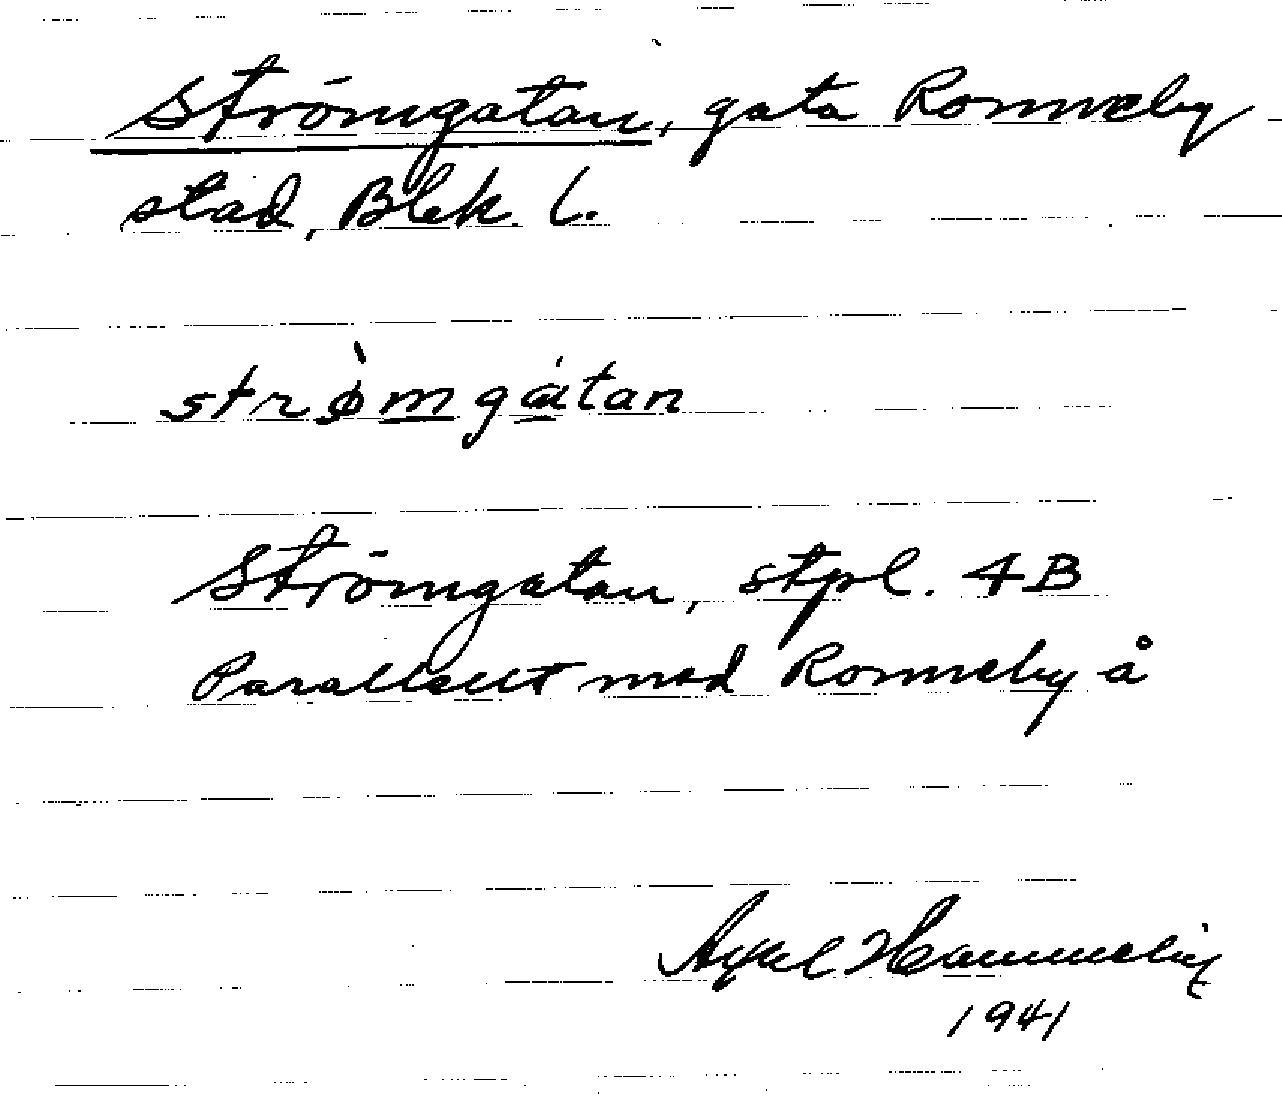 Strömgatan, gata Ronneby
stad, Blek. l.
strø̀mgátan
Strömgatan, stpl. 4B
Parallellt med Ronneby å
Axel
1941